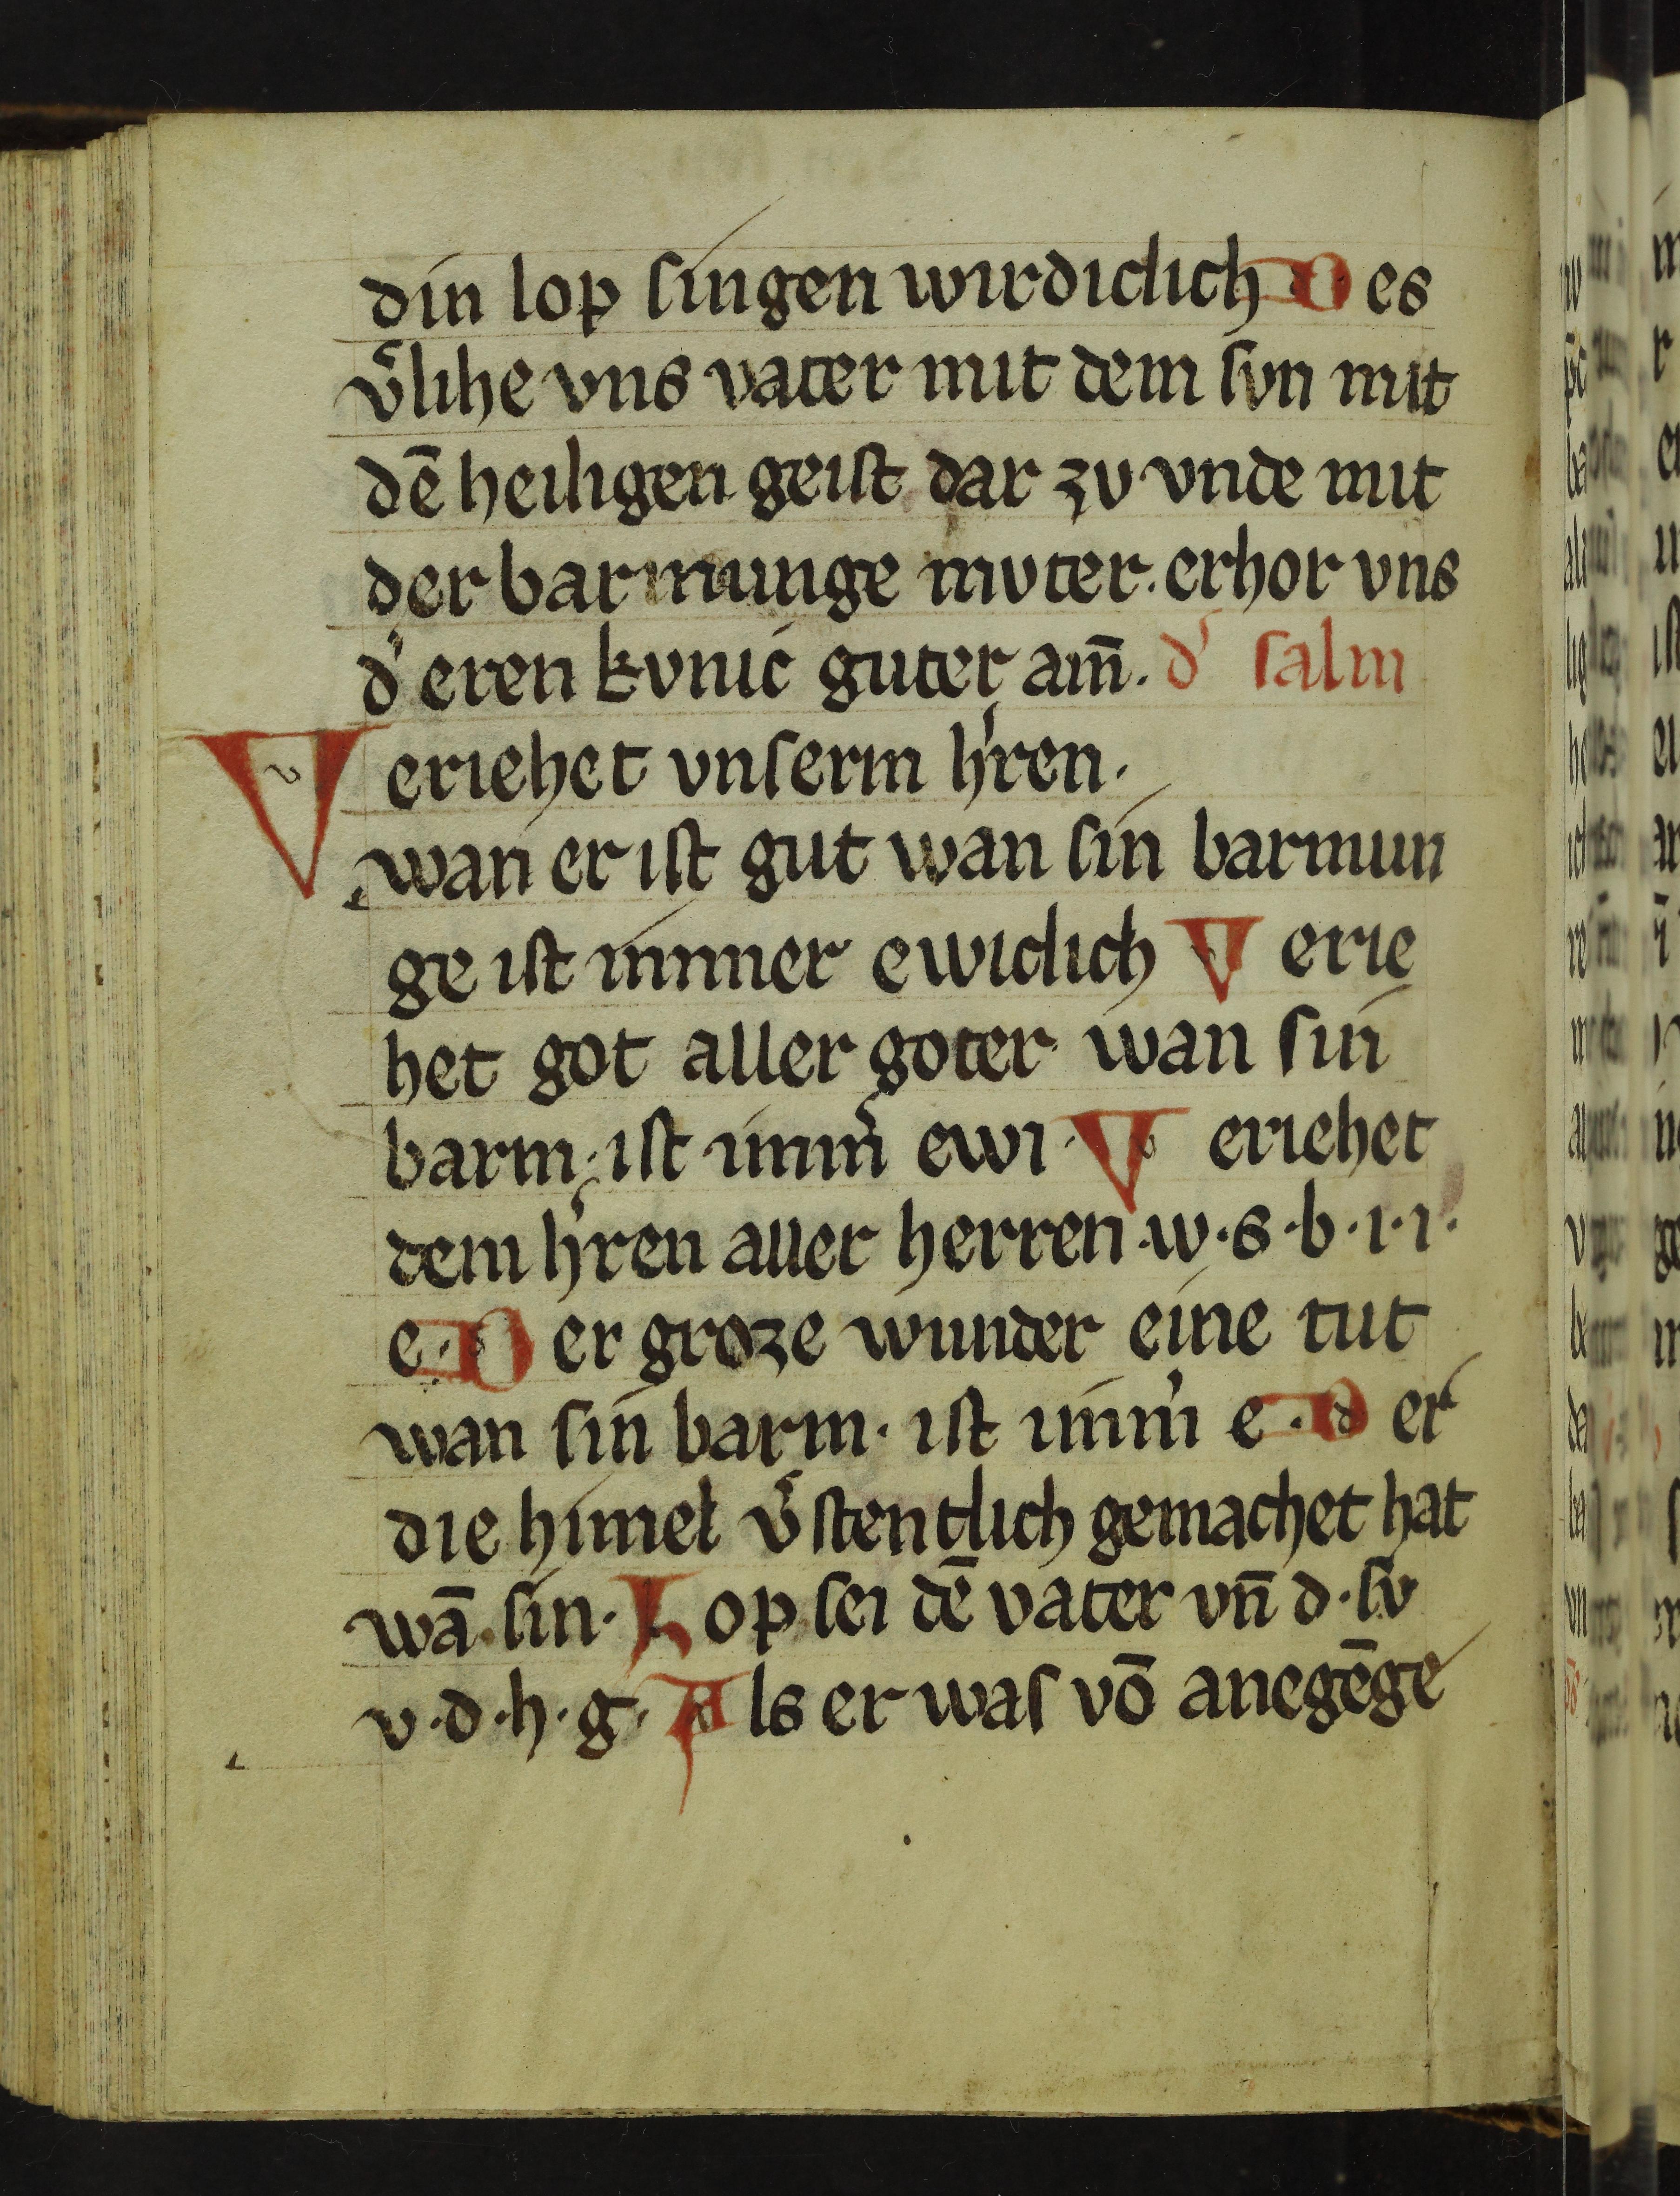 din lop singen wirdiclich D es
v͛lihe vns vater mit dem svn mit
dē heiligen geist dar zv vnde mit
der barmunge mvter. erhor vns
d͛ eren kvnic guter am̄. d͛ salm
Veriehet vnserm h͛ren.
wan er ist gut wan sin barmun
ge ist immer ewiclich V erie
het got aller goter wan sin
barm. ist imm͛ ewi. V eriehet
dem h͛ren aller herren w. s. b. i. i.
e. D er groze wunder eine tut
wan sin barm. ist imm͛ e. D er
die himel v͛stentlich gemachet hat
wā. sin. L op sei dē vater vn̄ d. sv
v. d. h. g. A ls er was vō anegēge